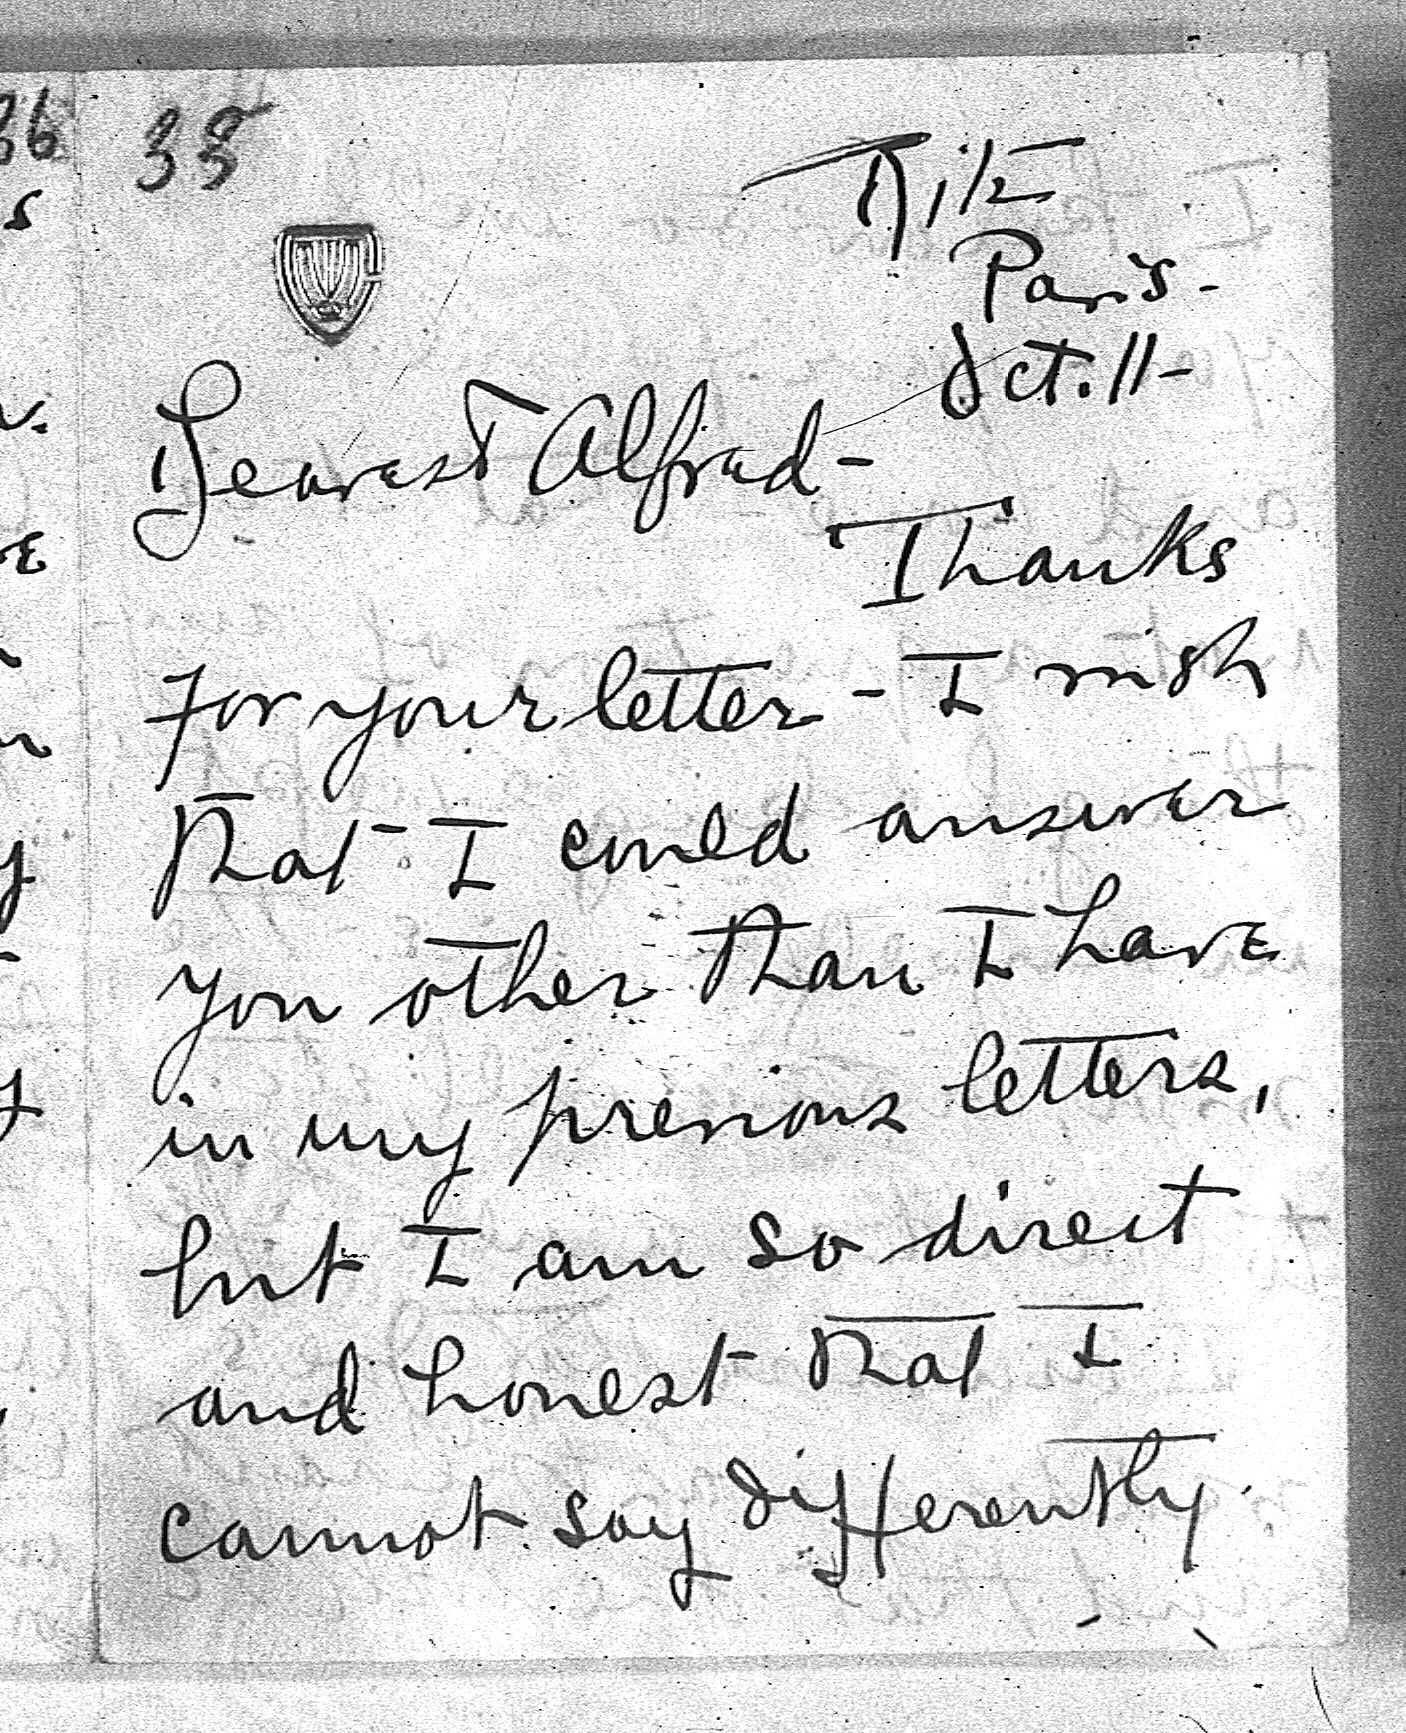 35
Ritz
Paris -
Oct. 11 -
Dearest Alfred -
Thanks
for your letter - I wish
that - I could answer
you other than I have
in my previous letters,
but I am so direct
and honest that I
cannot say differently.
36